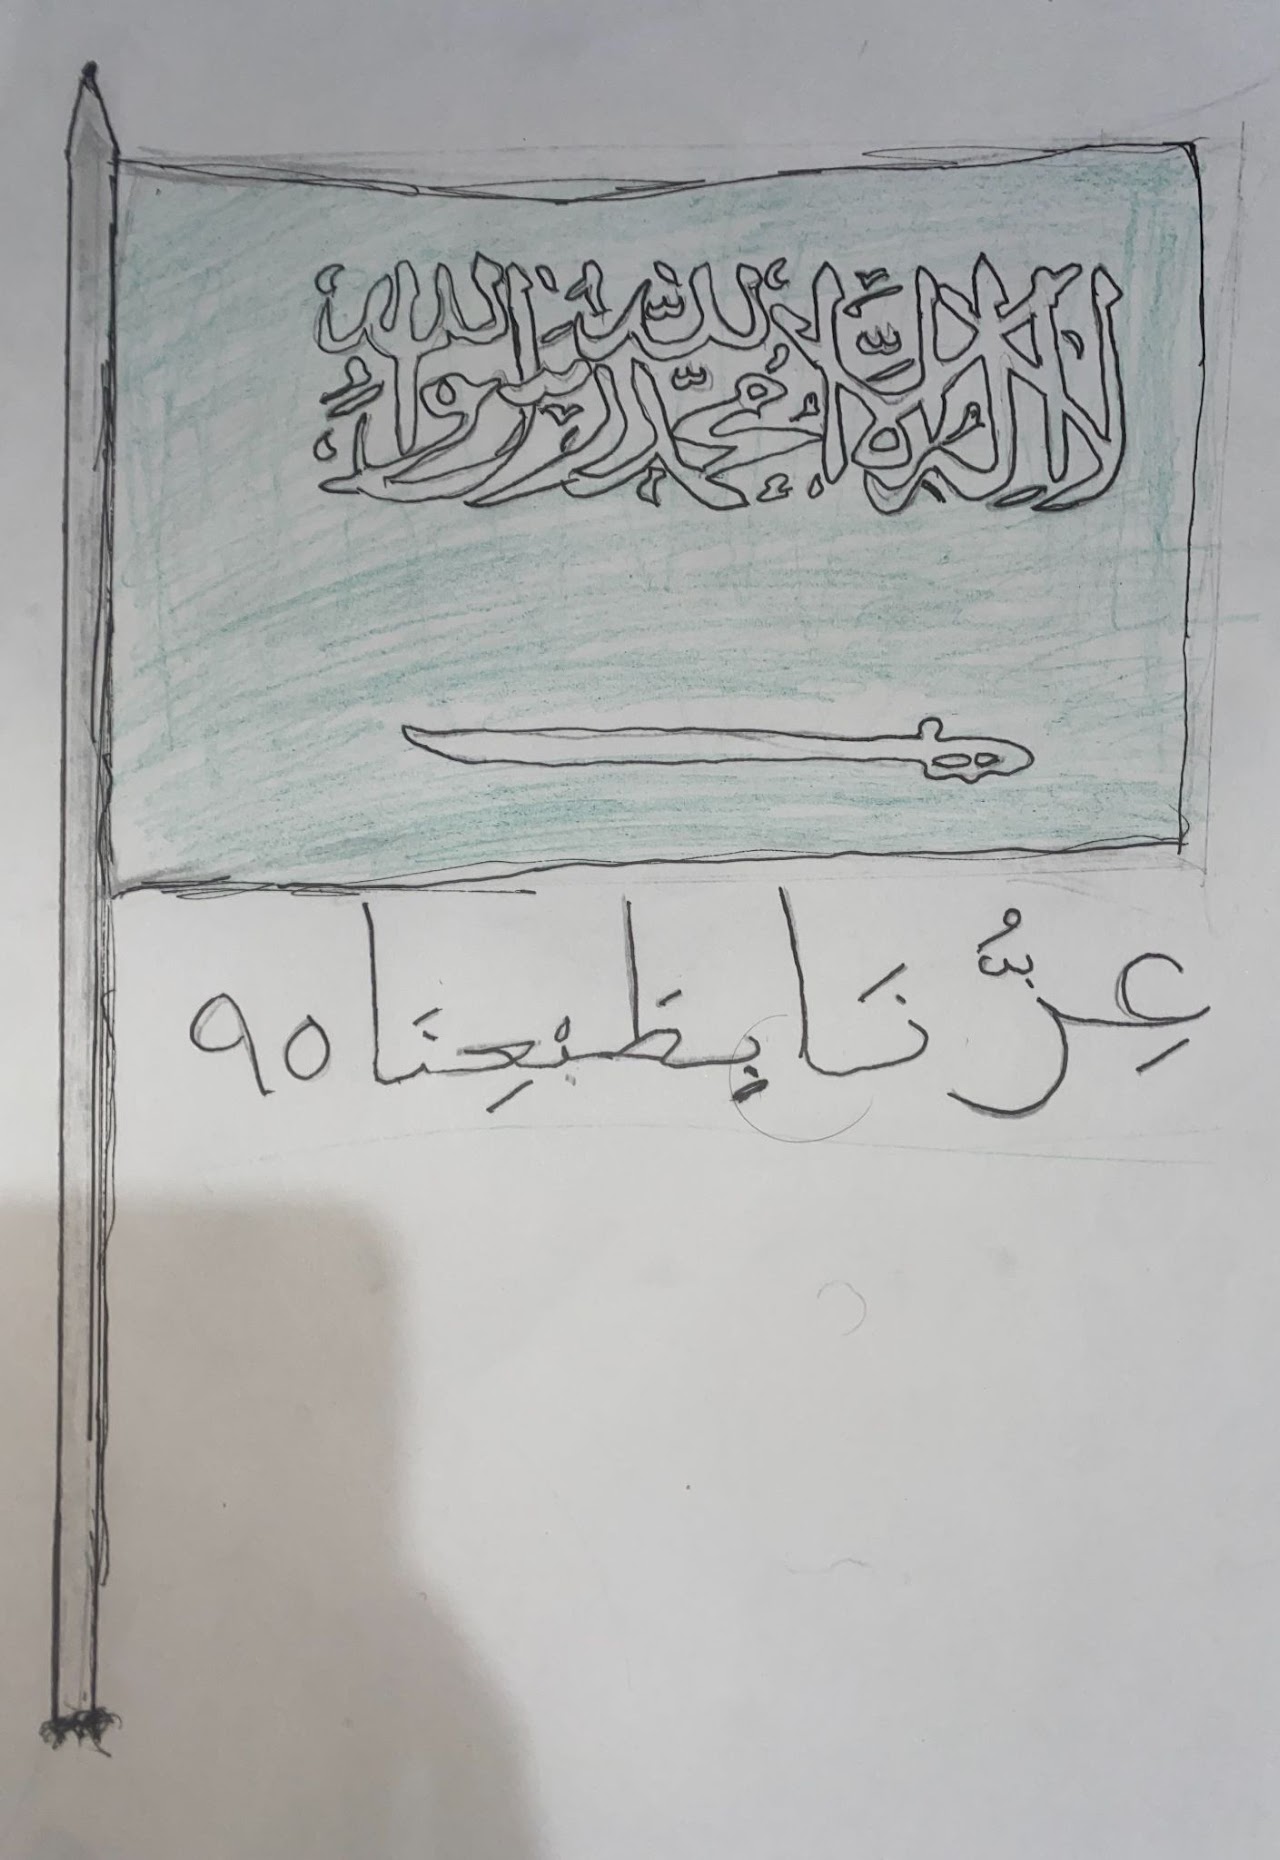 لا إله إلا الله محمد رسول الله
عِزُّنَا بِطَبْعِنَا ٩٥